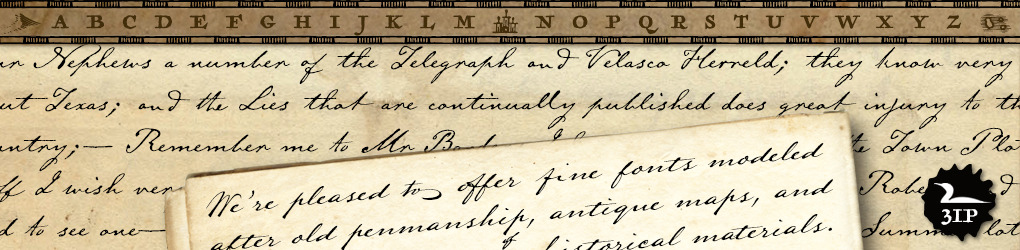 A B C D E F G H I J K L M N O P Q R S T U V W X Y Z
Nephews a number of the Telegraph and Velasco Herreld; they know very
Texas; and the Lies that are continually published does great injury to
Remember me to Mr
Town
I wish
to see one—
We're pleased to offer fine fonts modeled
after old penmanship, antique maps, and
historical materials.
3IP